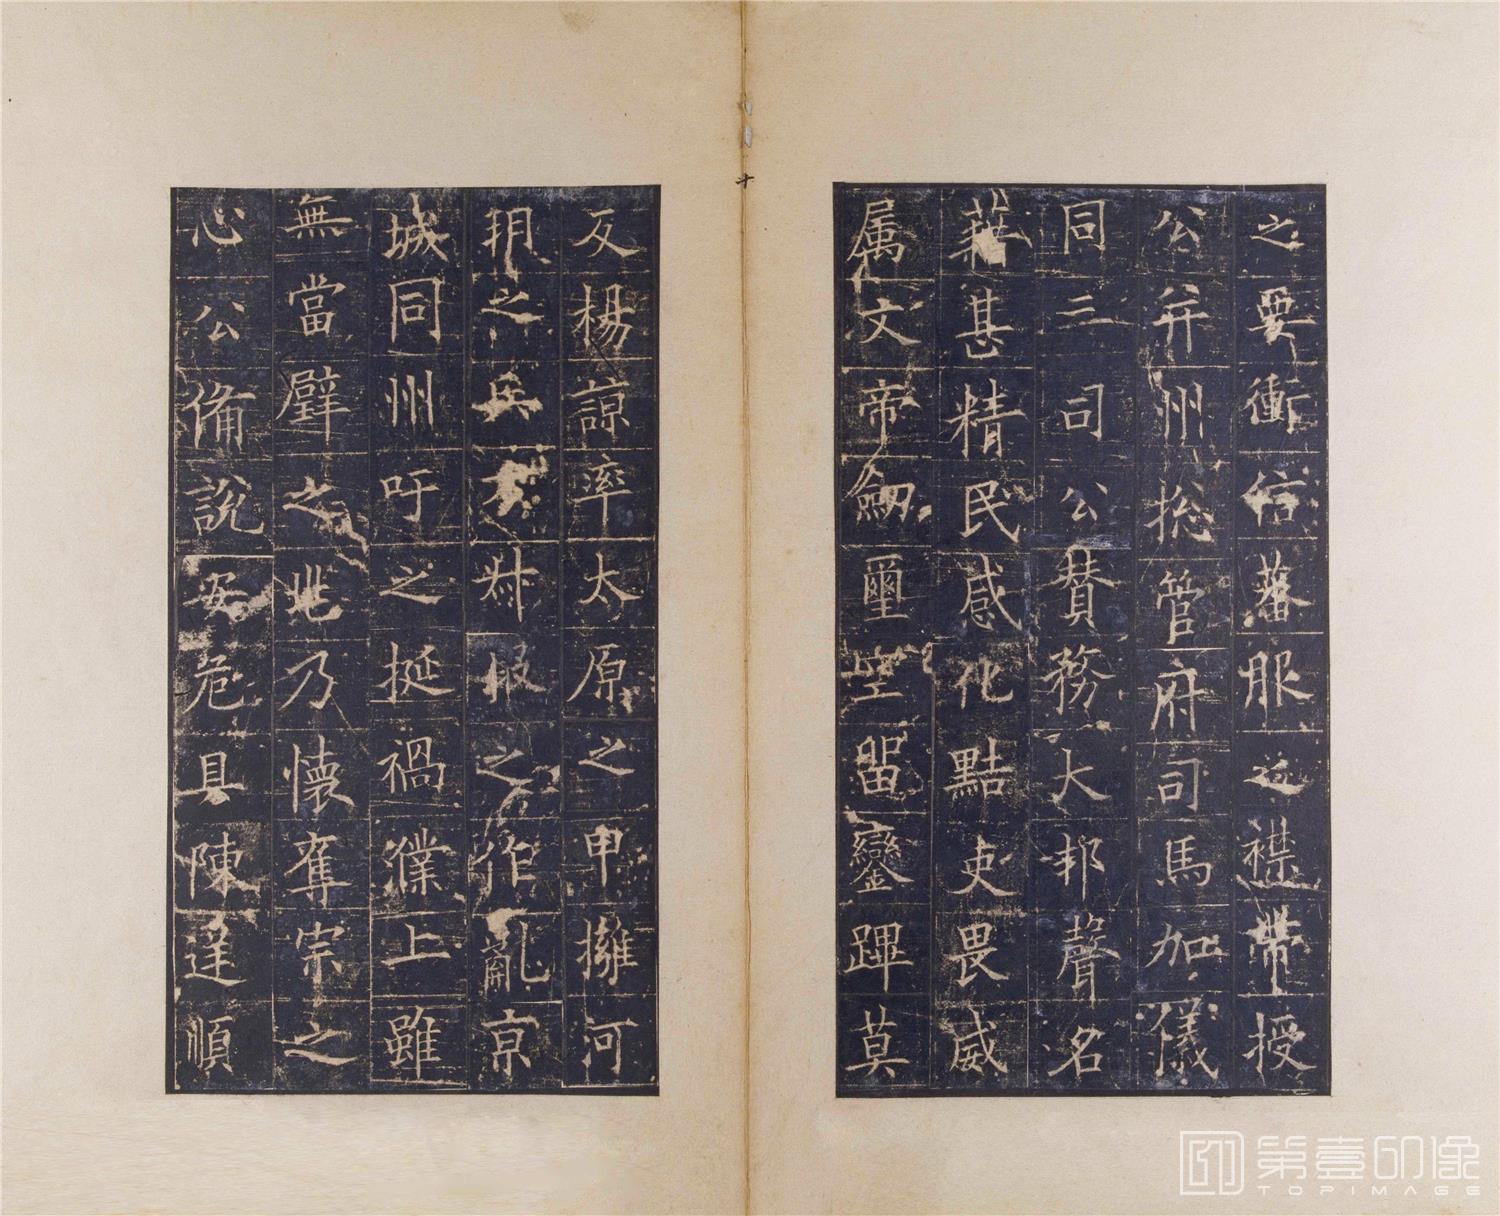 之要衝信藩服之襟帶授
公并州捴管府司馬加儀
同三司公賛務大邦聲名
藉甚精民感化黠吏畏威
属文帝劒璽空留鑾蹕莫
反楊諒率太原之甲擁河
朔之兵方叔段之作亂京
城同州吁之挺禍濮上雖
無當璧之兆乃懷奪宗之
心公備說安危具陳逆順
第壹印像
TOPIMAGE